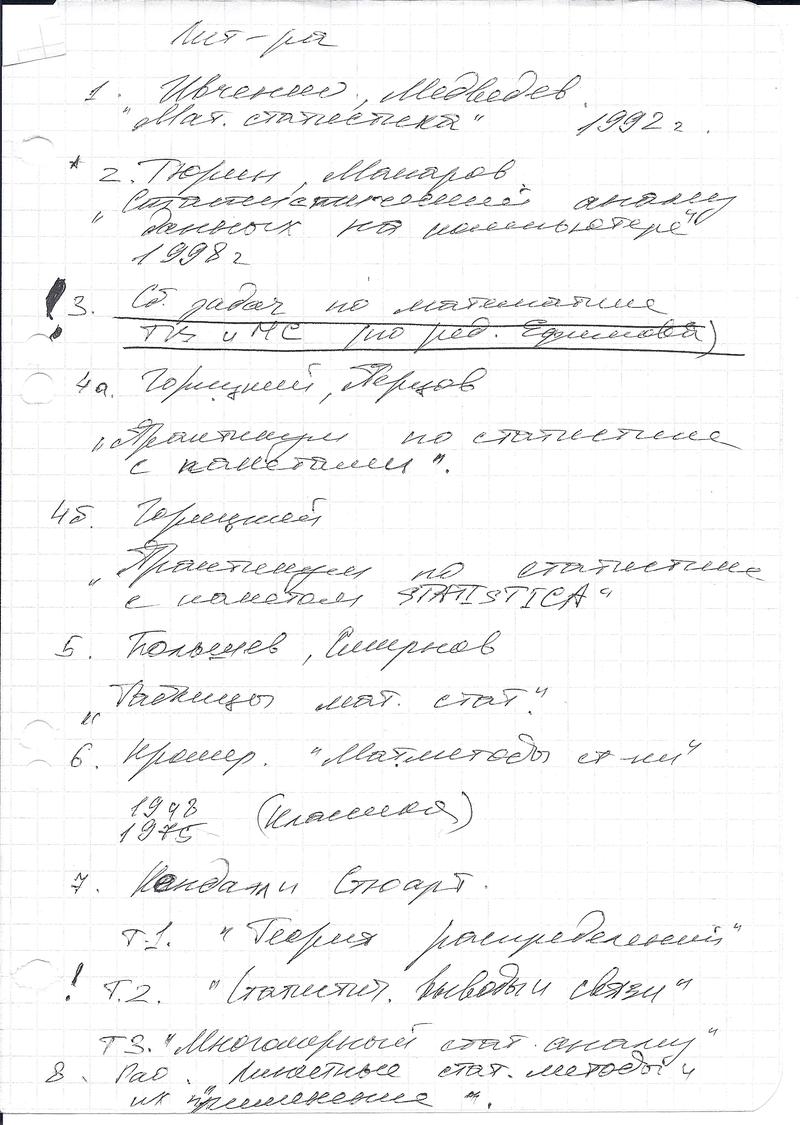 Лит-ра
1. Ивченко, Медведев
"Мат. статистика" 1992 г.
* 2. Тюрин, Макаров
"Статистический анализ
данных на компьютере"
1998 г
! 3. Сб. задач по математике
ТВ и МС (по ред. Ефимова)
4а. Горицкий, Перцов
"Практикум по статистике
с пакетами".
4б. Горицкий
"Практикум по статистике
с пакетом STATISTICA"
5. Большев, Смирнов
"Таблицы мат. стат."
6. Крамер. "Мат.методы ст-ки"
1948 (классика)
1975
7. Кендалл и Стюарт.
Т.1. "Теория распределений"
! Т.2. "Статистич. выводы и связи"
Т3. "Многомерный стат. анализ"
8. Рао. Линейные стат. методы и
их применение".